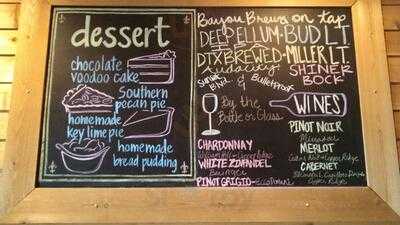 dessert
chocolate
voodoo cake
Southern
pecan pie
homemade
key lime pie
homemade
bread pudding
Bayou Brews on tap
DEEP ELLUM-BUD LT
DTXBREWED-MILLER LT
audacity SHINER
Sunset Blvd. & Bulletproof BOCK
By the
Bottle or Glass
WINES
CHARDONNAY
WHITE ZINFANDEL
Beringer
PINOT GRIGIO-Ecco Domani
PINOT NOIR
Mirassou
MERLOT
CABERNET